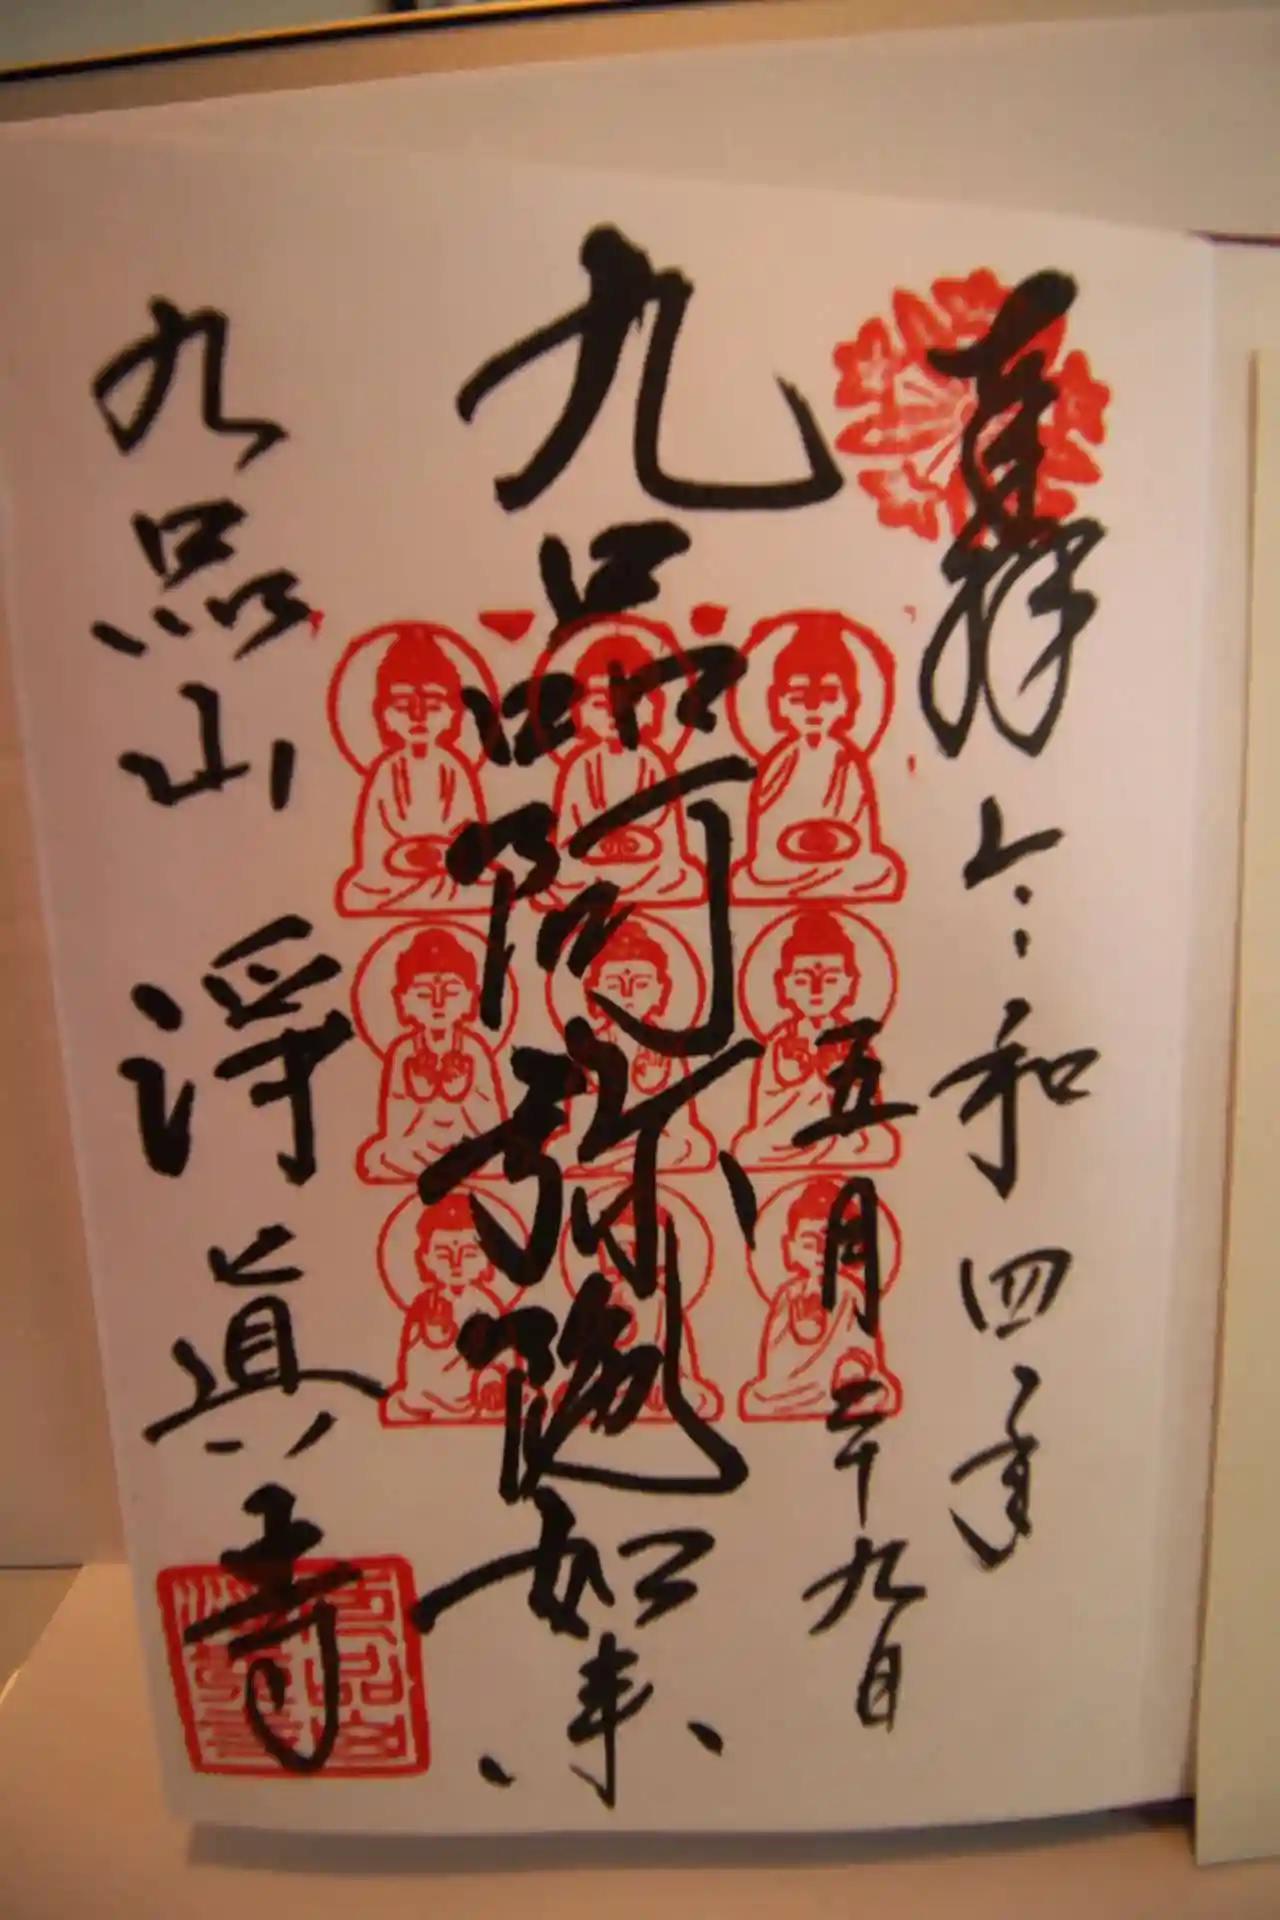 奉拝
令和四年
五月二十九日
九品阿弥陀如来
九品山 浄眞寺